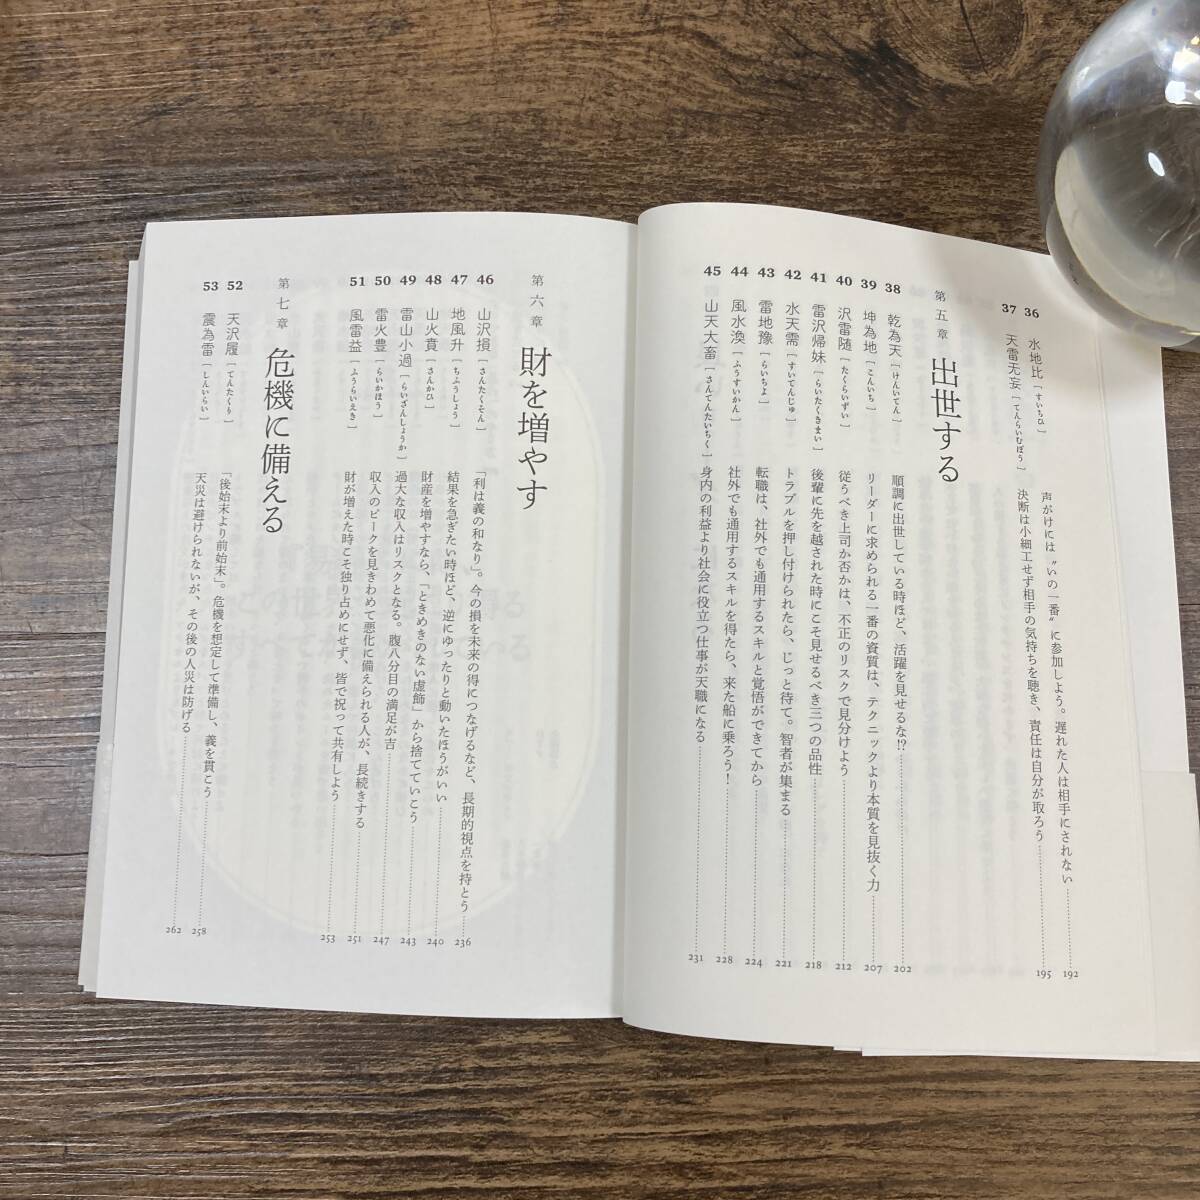 36 水地比［すいちひ］ 声がけには〝いの一番〟に参加しよう。遅れた人は相手にされない 192
37 天雷无妄［てんらいむぼう］ 決断は小細工せず相手の気持ちを聴き、責任は自分が取ろう 195
第五章 出世する
38 乾為天［けんいてん］ 順調に出世している時ほど、活躍を見せるな!? 202
39 坤為地［こんいち］ リーダーに求められる一番の資質は、テクニックより本質を見抜く力 207
40 沢雷随［たくらいずい］ 従うべき上司か否かは、不正のリスクで見分けよう 212
41 雷沢帰妹［らいたくきまい］ 後輩に先を越された時にこそ見せるべき三つの品性 218
42 水天需［すいてんじゅ］ トラブルを押し付けられたら、じっと待て。智者が集まる 221
43 雷地豫［らいちよ］ 転職は、社外でも通用するスキルと覚悟ができてから 224
44 風水渙［ふうすいかん］ 社外でも通用するスキルを得たら、来た船に乗ろう！ 228
45 山天大畜［さんてんたいちく］ 身内の利益より社会に役立つ仕事が天職になる 231
第六章 財を増やす
46 山沢損［さんたくそん］ 「利は義の和なり」。今の損を未来の得につなげるなど、長期的視点を持とう 236
47 地風升［ちふうしょう］ 結果を急ぎたい時ほど、逆にゆったりと動いたほうがいい 240
48 山火賁［さんかひ］ 財産を増やすなら、「ときめきのない虚飾」から捨てていこう 243
49 雷山小過［らいざんしょうか］ 過大な収入はリスクとなる。腹八分目の満足が吉 247
50 雷火豊［らいかほう］ 収入のピークを見きわめて悪化に備えられる人が、長続きする 251
51 風雷益［ふうらいえき］ 財が増えた時こそ独り占めにせず、皆で祝って共有しよう 253
第七章 危機に備える
52 天沢履［てんたくり］ 「後始末より前始末」。危機を想定して準備し、義を貫こう 258
53 震為雷［しんいらい］ 天災は避けられないが、その後の人災は防げる 262